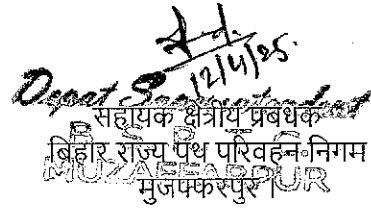 12/4/25.
Depot Superintendent
सहायक क्षेत्रीय प्रबंधक
B. S. R. T. C.
बिहार राज्य पथ परिवहन निगम
MUZAFFARPUR
मुजफ्फरपुर ।